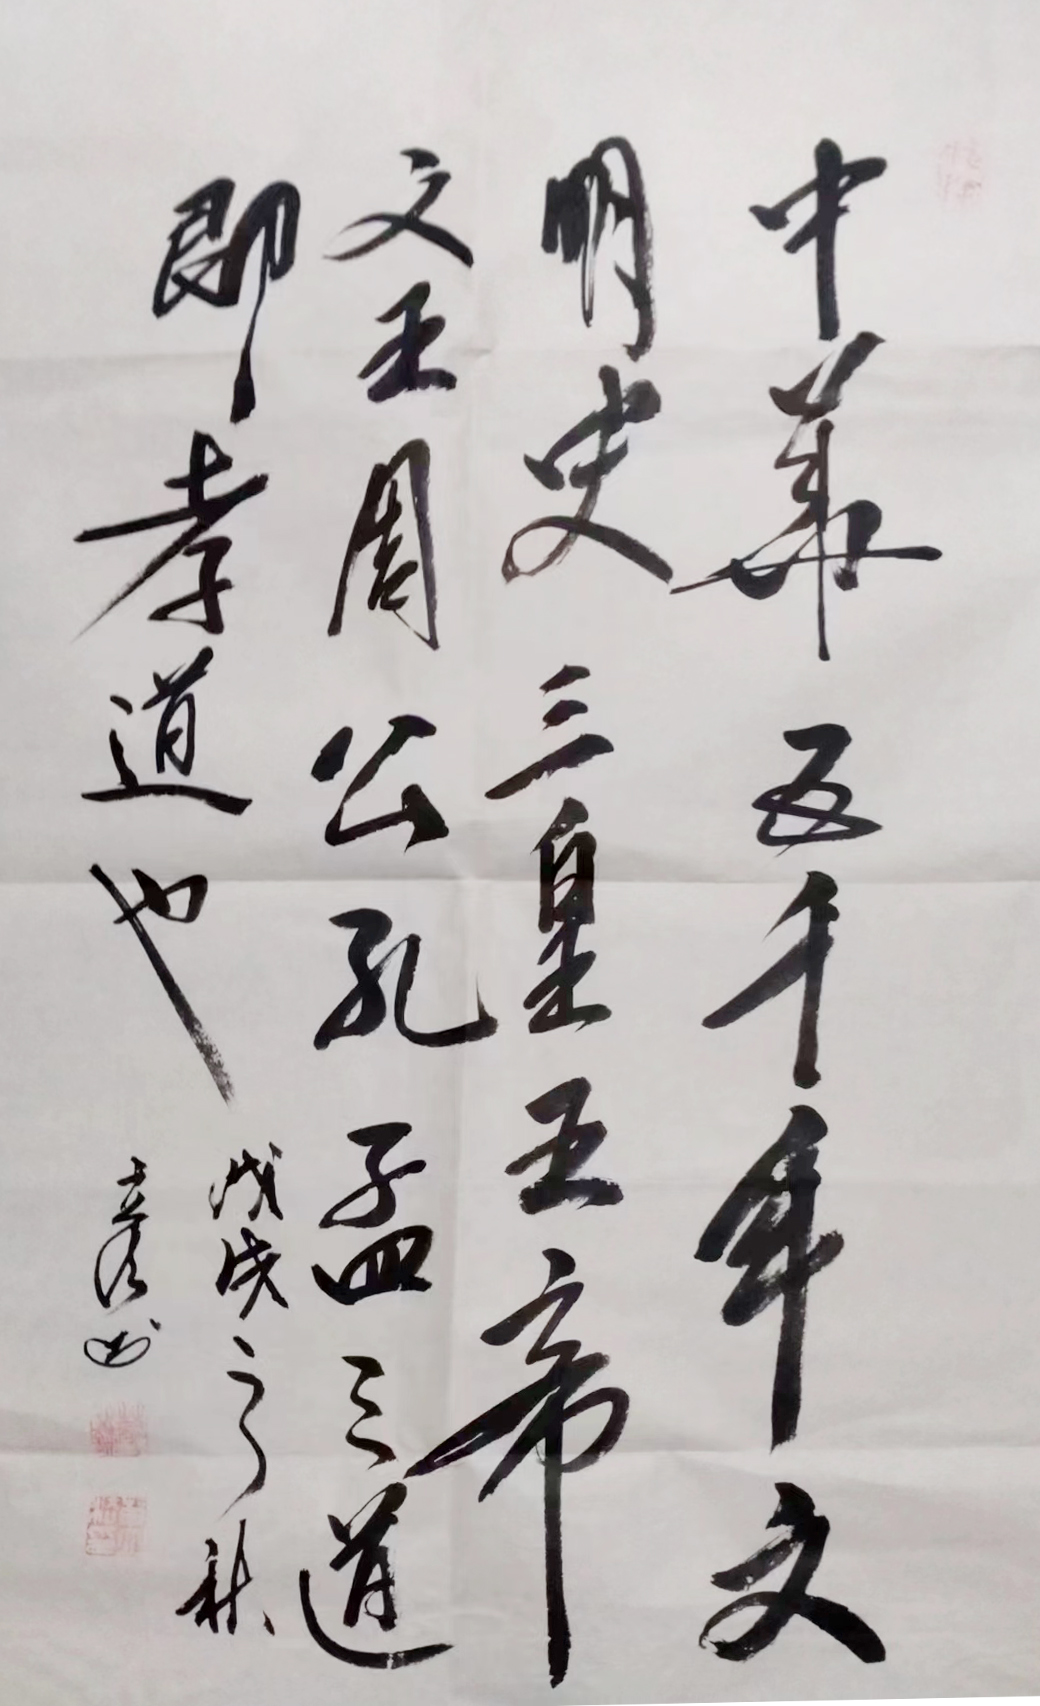 中华五千年文
明史三皇五帝
文王周公孔孟之道
即孝道也
戊戌之秋
书